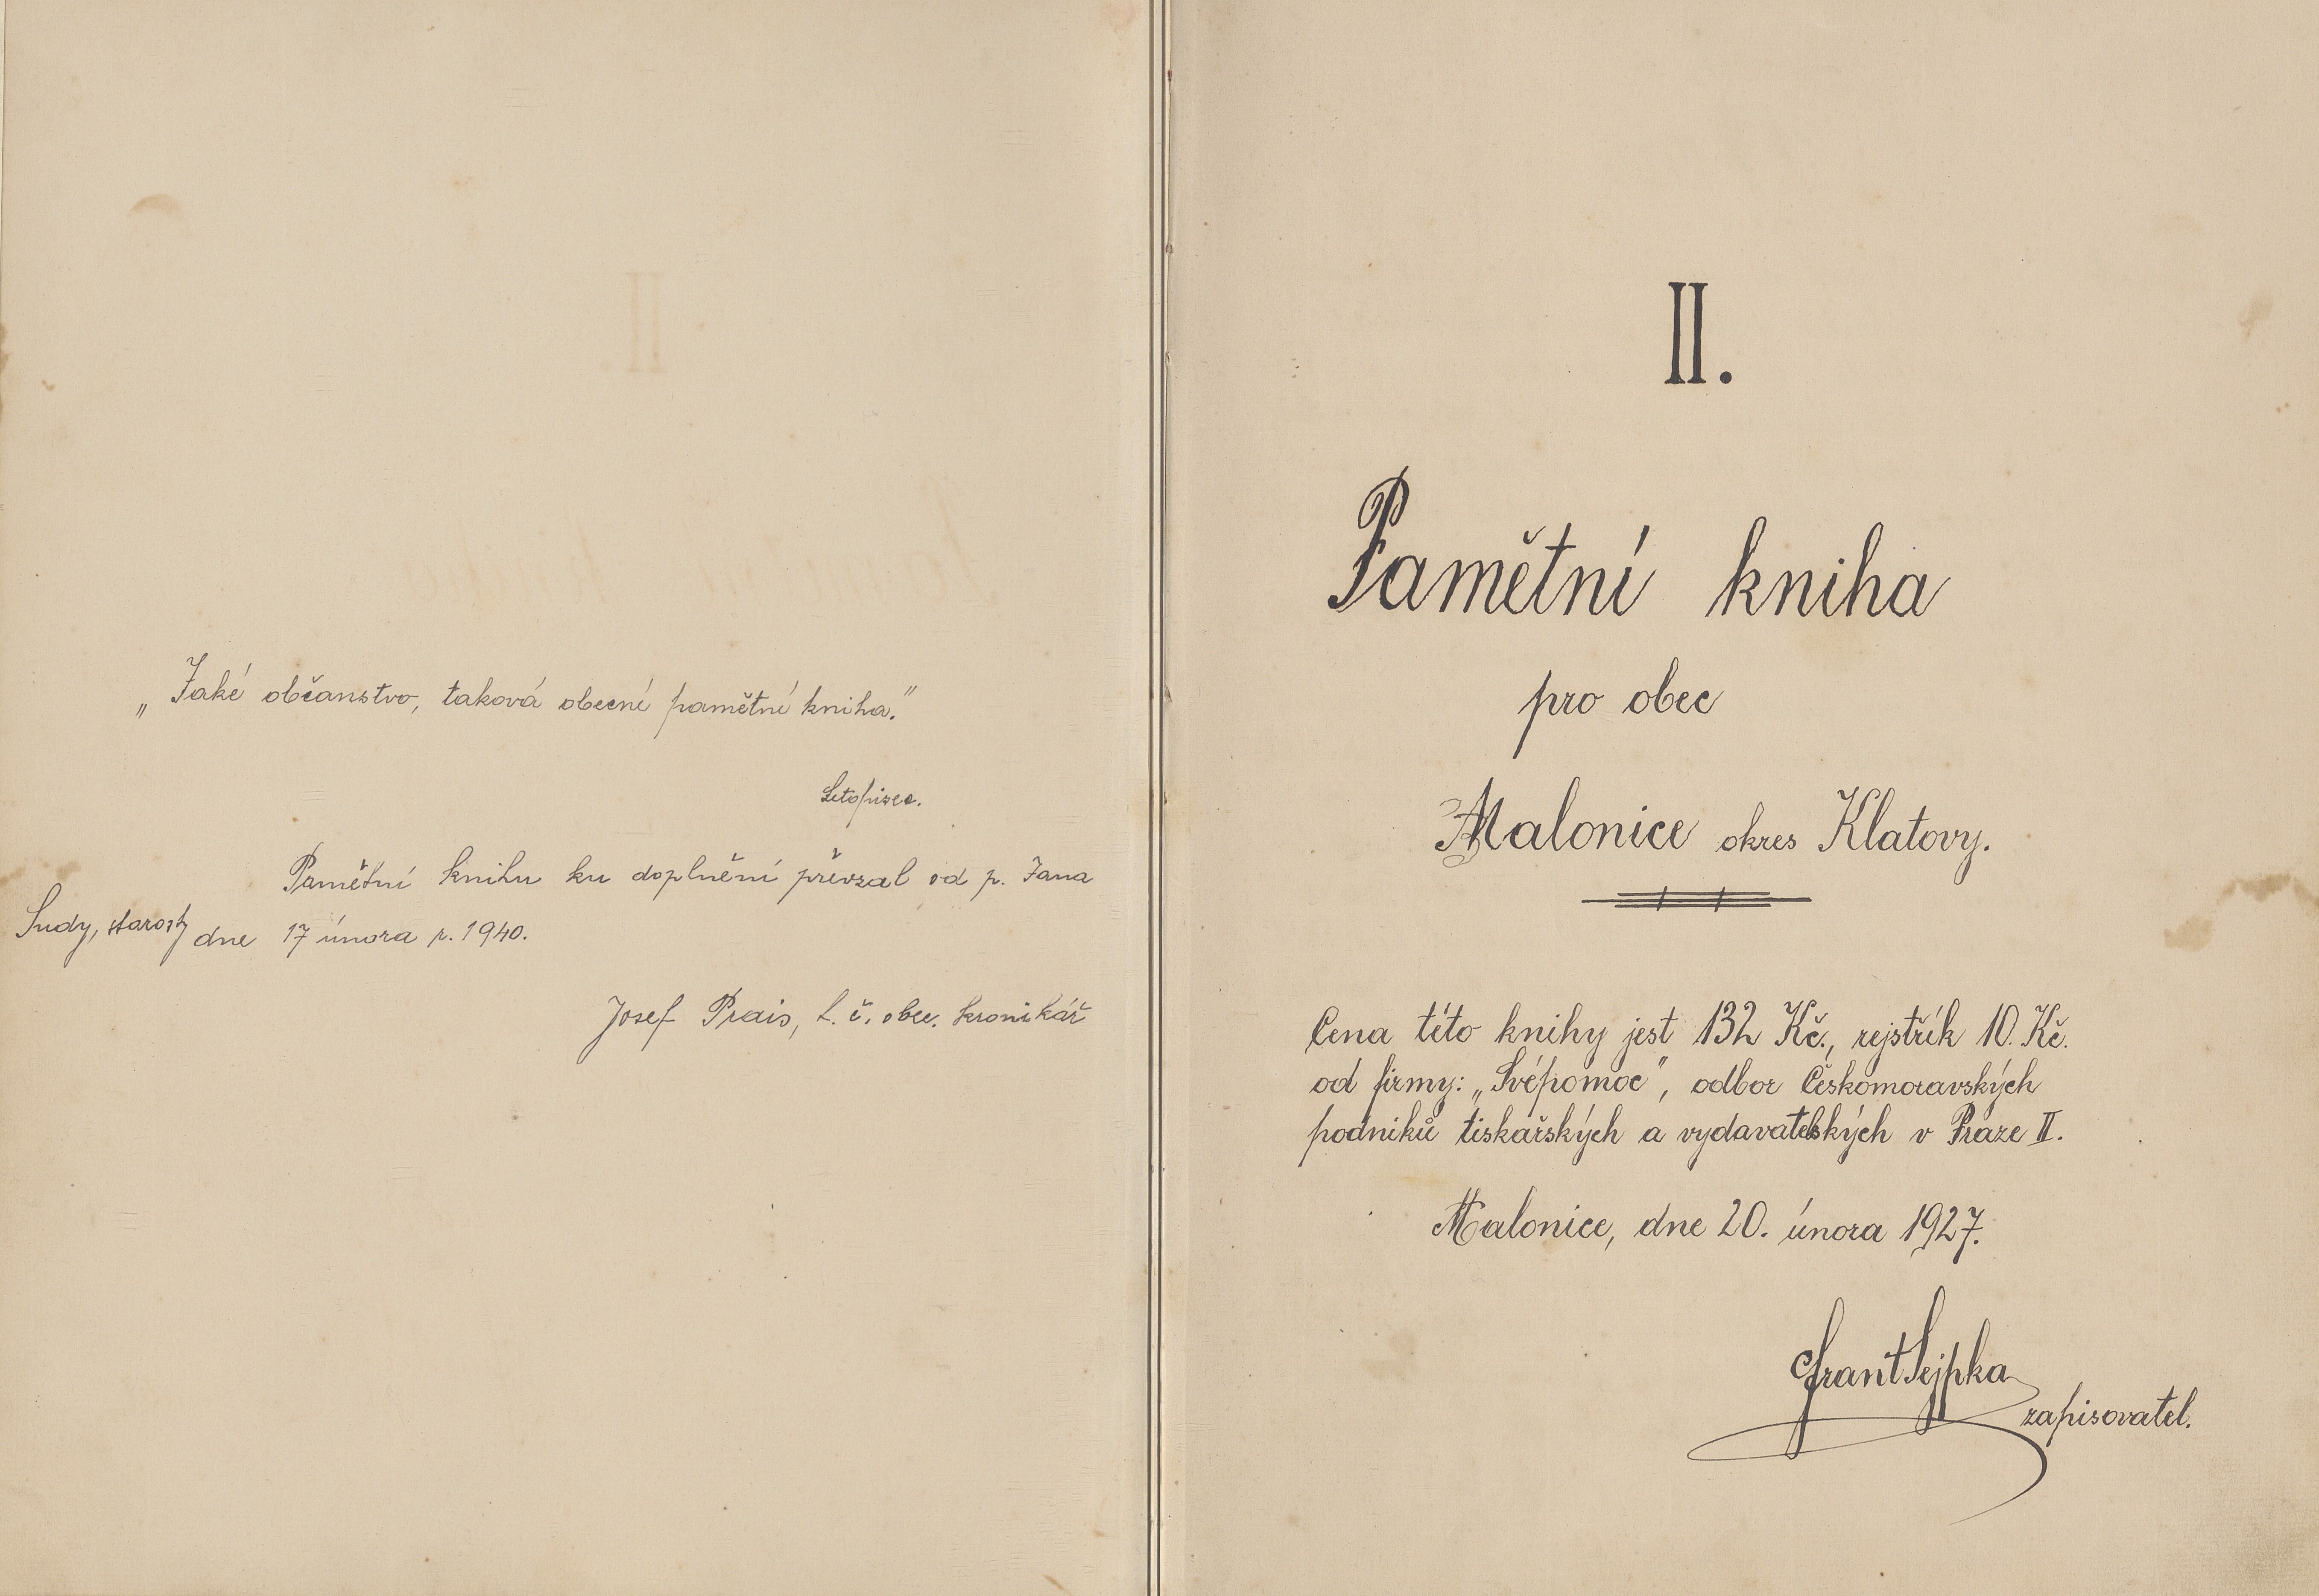 „Jaké občanstvo, taková obecní pamětní kniha.“
Letopisec.
Pamětní knihu ku doplnění převzal od p. Jana
Sudy, starosty dne 17 února r. 1940.
Josef Prais, t. č. obec. kronikář
II.
Pamětní kniha
pro obec
Malonice okres Klatovy.
Cena této knihy jest 132 Kč., rejstřík 10. Kč.
od firmy: „Svépomoc“, odbor Českomoravských
podniků tiskařských a vydavatelských v Praze II.
Malonice, dne 20. února 1927.
Frant Sejpka
zapisovatel.